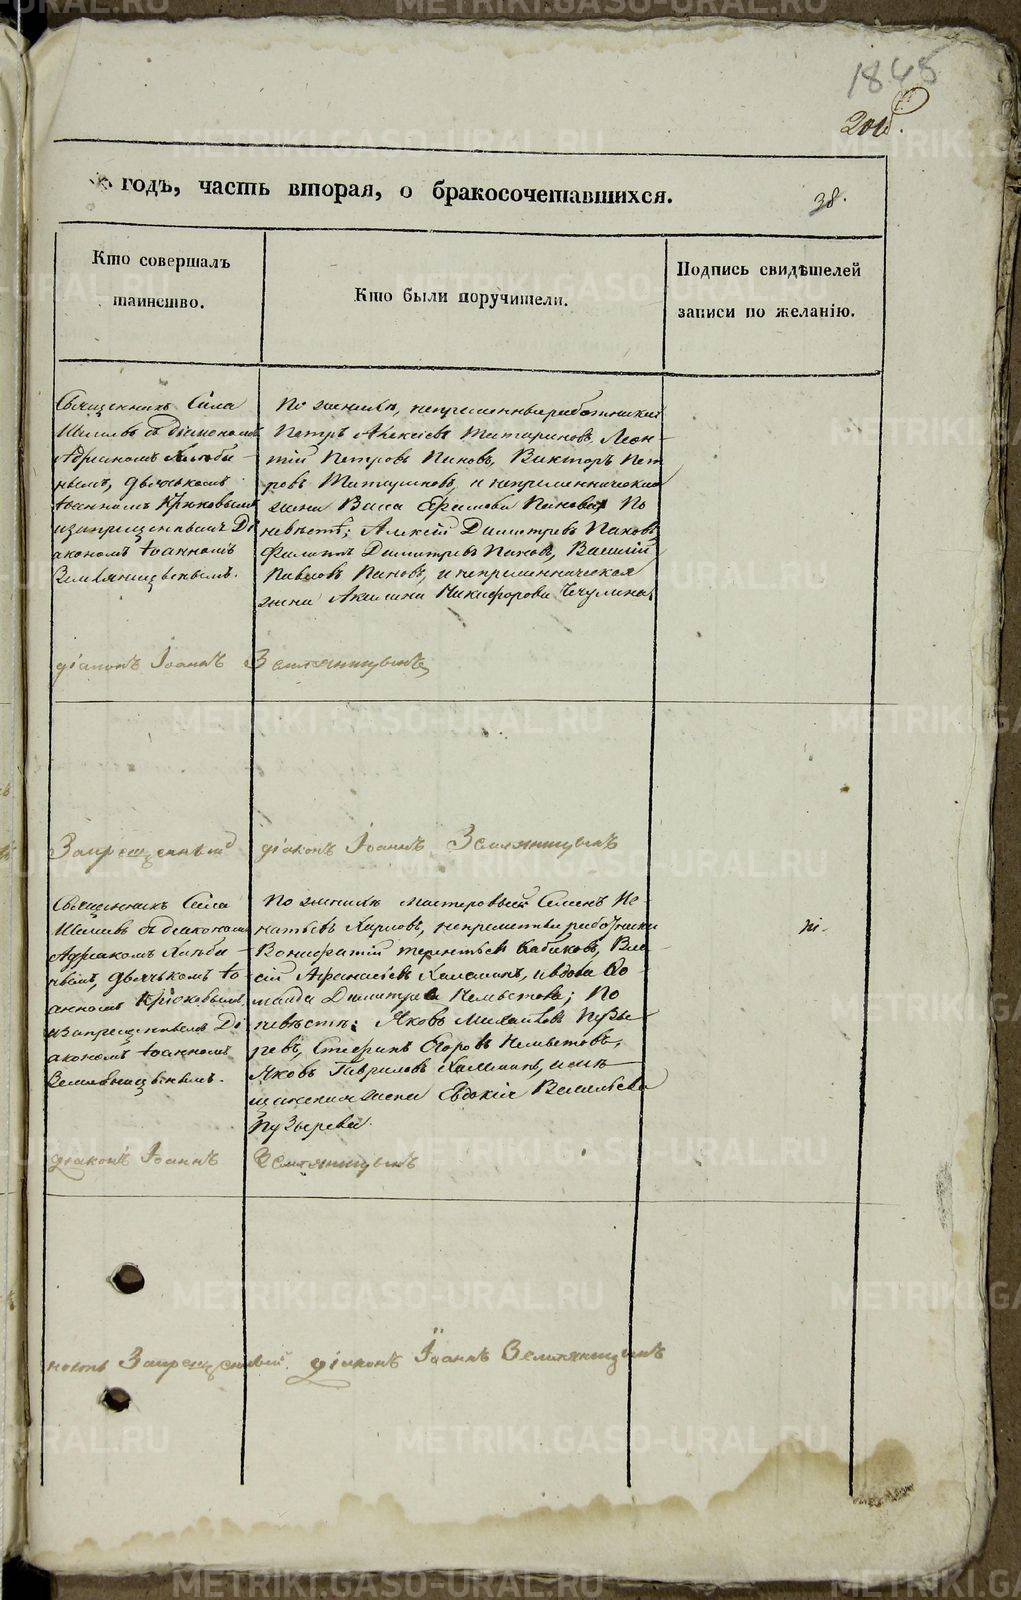 1845
годъ, часть вторая, о бракосочетавшихся.
38.
Кто совершалъ
таинство.
Кто были поручители.
Подпись свидѣтелей
записи по желанію.
Священникъ Сила
съ діакономъ
Адріаномъ
нымъ, дьячькомъ
Іоанномъ Крюковымъ
изапрещеннымъ Ді
акономъ Іоанномъ
Земляницынымъ.
По женихѣ, непременныеработники
Петръ Алексіевъ Татариновъ, Леон-
тій Петровъ Пановъ, Викторъ Пет
ровъ Татариновъ, и непременническая
жена Васса Ефимова Панова; По
невѣстѣ; Алексій Димитріевъ Пановъ
Филиппъ Димитріевъ Пановъ, Василій
Павловъ Пановъ, и непременническая
жена Акилина Никифорова Чечулина,
діаконъ Іоаннъ Земляницынъ
Запрещенный діаконъ Іоаннъ Земляницынъ
Священникъ Сила
съ діакономъ
Адріаномъ
нымъ, дьячькомъ Іо
анномъ Крюковымъ,
изапрещеннымъ Ді
акономъ Іоанномъ
Земляницынымъ.
По женихѣ мастеровый Семенъ Иг
натьевъ непременные работники
Вонифатій Терентьевъ Бабиковъ, Вас
сій Афанасіевъ ивдова До
мнида Димитріева По
невѣстѣ: Яковъ Михаиловъ Пузы-
ревъ, Стефанъ Егоровъ
Яковъ Гавриловъ имѣ
щанская жена Евдокія Васильева
Пузырева.
діаконъ Іоаннъ Земляницынъ
Запрещенный діаконъ Іоаннъ Земляницынъ
METRIKI.GASO-URAL.RU